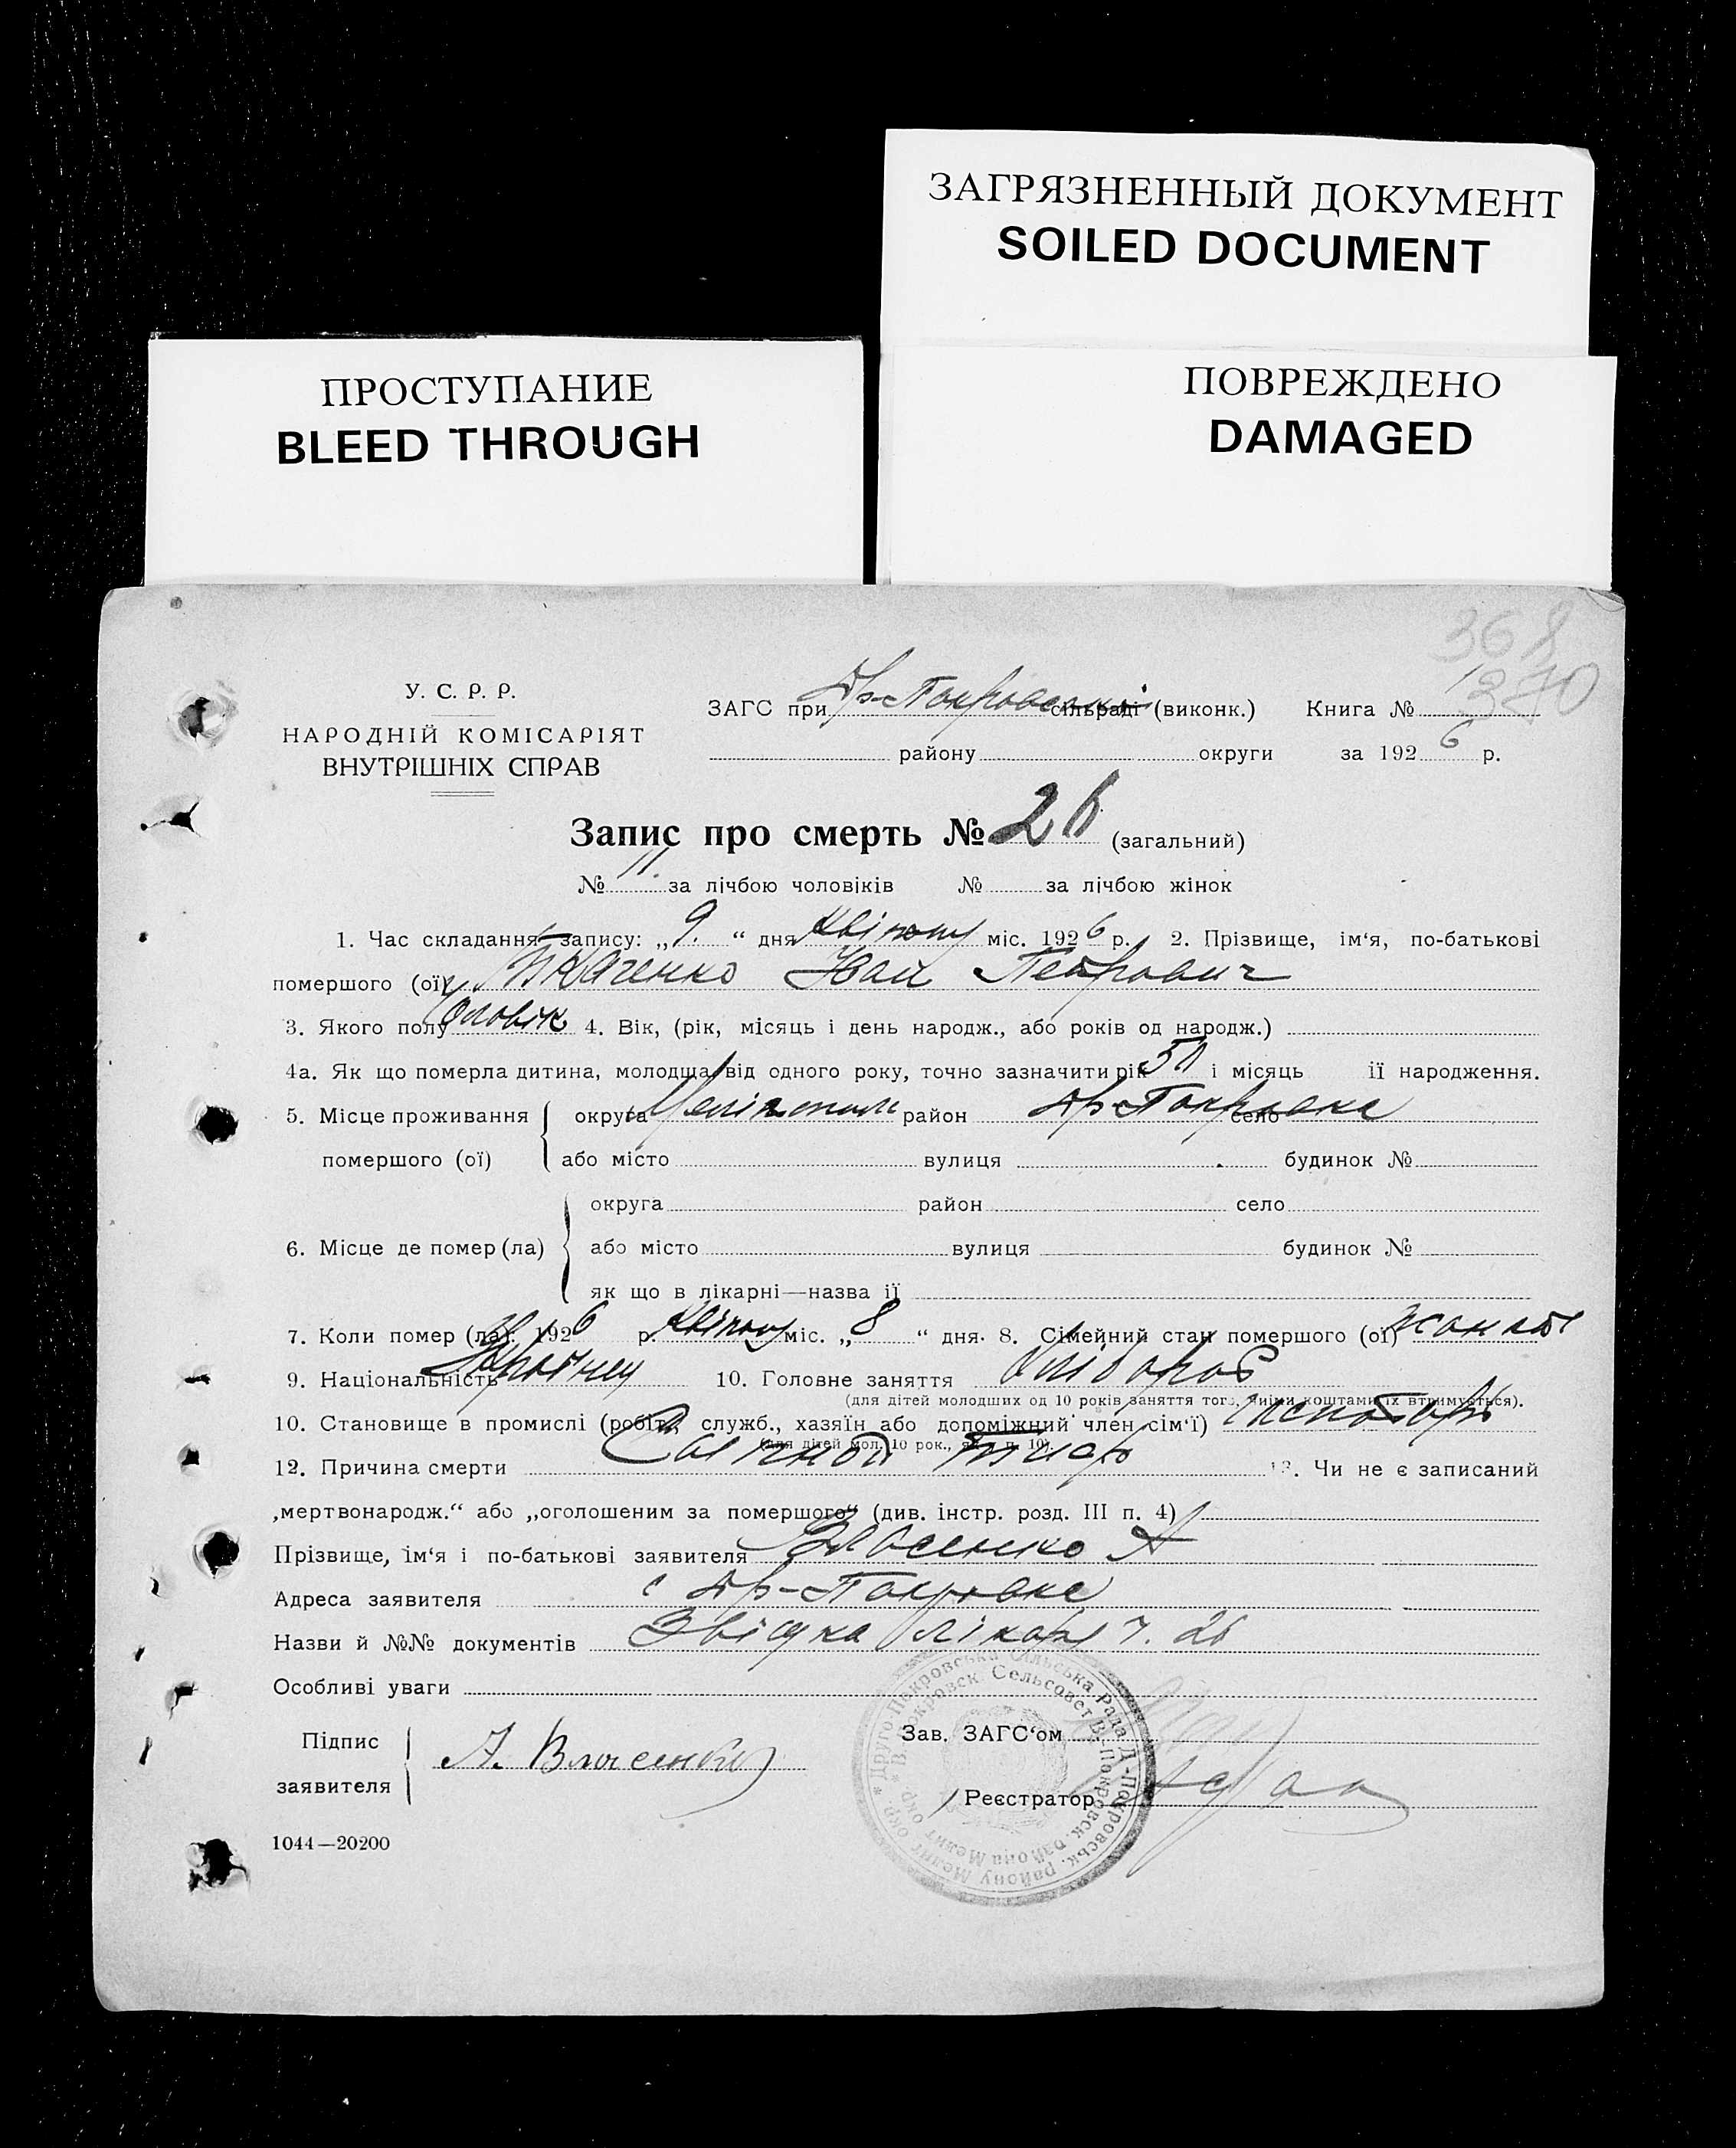 ЗАГРЯЗНЕННЫЙ ДОКУМЕНТ
SOILED DOCUMENT
ПРОСТУПАНИЕ
BLEED THROUGH
ПОВРЕЖДЕНО
DAMAGED
368
370
У. С. Р. Р.
НАРОДНІЙ КОМІСАРІЯТ
ВНУТРІШНІХ СПРАВ
ЗАГС при Др-Покровській сільраді (виконк.) Книга №
району округи за 1926 р.
Запис про смерть № 26 (загальний)
№ 11. за лічбою чоловіків № за лічбою жінок
1. Час складання запису: „9.“ дня квітню міс. 1926 р. 2. Прізвище, ім‘я, по-батькові
помершого (ої) Ткаченко Іван Петрович
3. Якого полу Чоловік 4. Вік, (рік, місяць і день народж., або років од народж.)
4а. Як що померла дитина, молодша від одного року, точно зазначити рік і місяць її народження.
5. Місце проживання округа район Др-Покровка село
помершого (ої) або місто вулиця будинок №
округа район село
6. Місце де помер (ла) або місто вулиця будинок №
як що в лікарні—назва її
7. Коли помер (ла): 1926 р. квітню міс. „8“ дня. 8. Сімейний стан помершого (ої) жонат
9. Національність Українец 10. Головне заняття хлібороб
(для дітей молодших од 10 років заняття того, чиїми коштами їх втримується).
10. Становище в промислі (робітн, служб., хазяїн або допоміжний член сім‘ї)
(для дітей мол. 10 рок., як п. 10).
12. Причина смерти 13. Чи не є записаний
„мертвонародж.“ або „оголошеним за помершого“ (див. інстр. розд. III п. 4)
Прізвище, ім‘я і по-батькові заявителя Власенко А
Адреса заявителя с Др-Покровка
Назви й №№ документів Звідка лікаря ч. 26
Особливі уваги
Підпис
заявителя А. Власенко
Зав. ЗАГС‘ом
Реєстратор
Друго-Покровська Сільська Рада Д-Покровськ. району Мелит. окр.
В. Покровск. Сельсовет В. Покровск. района Мелит. окр.
1044—20200